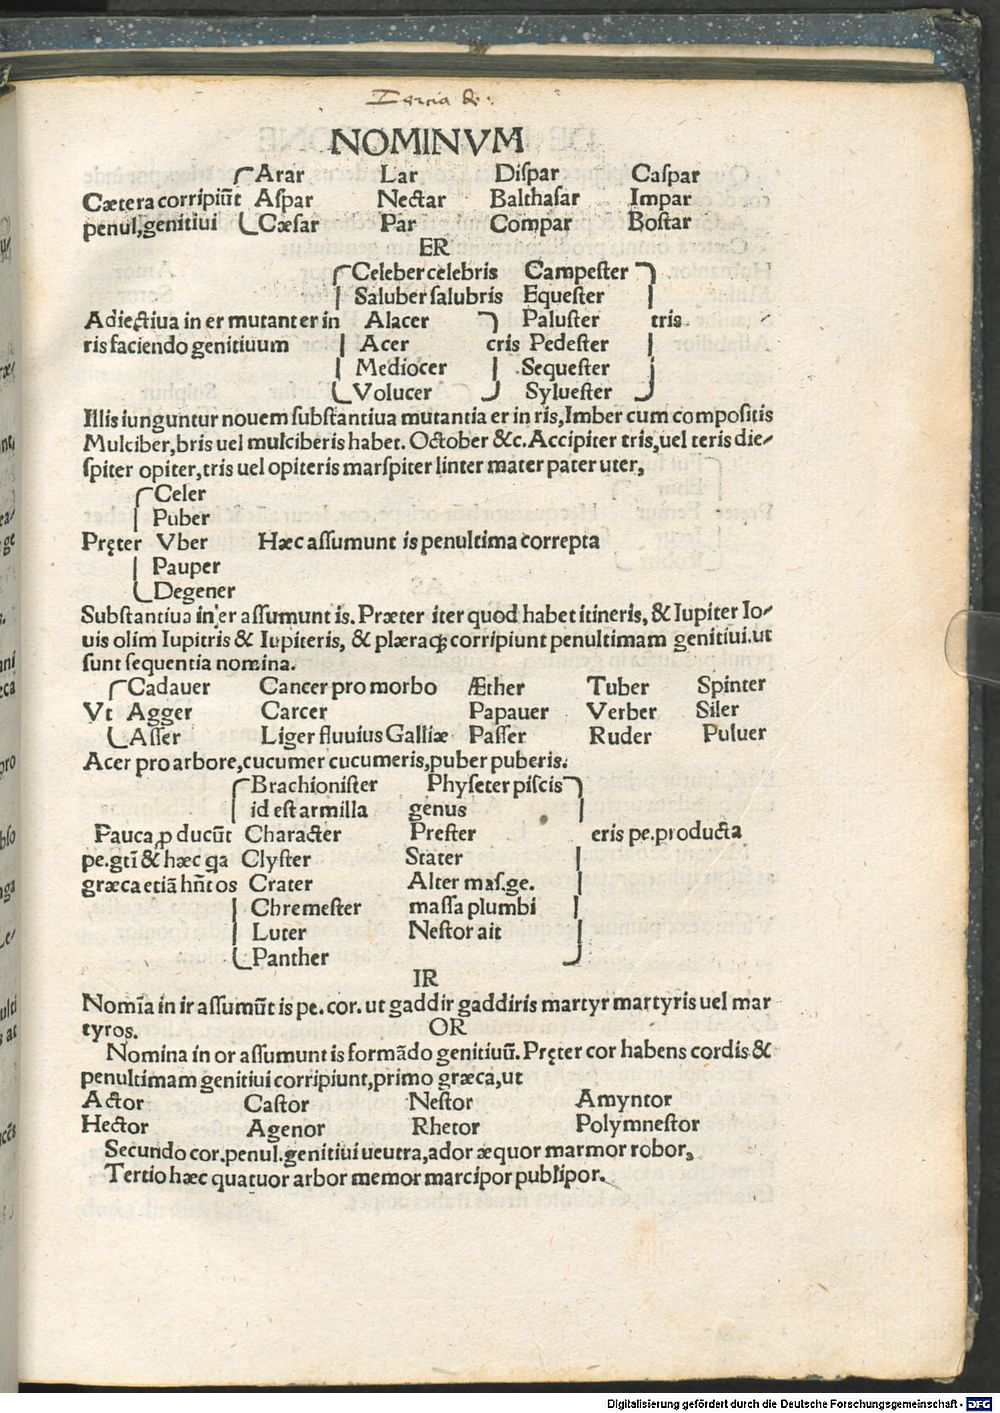 Tercia de.
NOMINVM
Arar Lar Dispar Caspar
Cætera corripiūt Aspar Nectar Balthasar Impar
penul,genitiui Cæsar Par Compar Bostar
ER
Celeber celebris Campester
Saluber salubris Equester
Adiectiua in er mutant er in Alacer Paluster tris
ris faciendo genitiuum Acer cris Pedester
Mediocer Sequester
Volucer Syluester
Illis iunguntur nouem substantiua mutantia er in ris,Imber cum compositis
Mulciber,bris uel mulciberis habet. October &c. Accipiter tris,uel teris die-
spiter opiter,tris uel opiteris marspiter linter mater pater uter,
Celer
Puber
Pręter Vber Hæc assumunt is penultima correpta
Pauper
Degener
Substantiua in er assumunt is. Præter iter quod habet itineris, & Iupiter Io-
uis olim Iupitris & Iupiteris, & plæraqȝ corripiunt penultimam genitiui.ut
sunt sequentia nomina.
Cadauer Cancer pro morbo Æther Tuber Spinter
Vt Agger Carcer Papauer Verber Siler
Asser Liger fluuius Galliæ Passer Ruder Puluer
Acer pro arbore,cucumer cucumeris,puber puberis.
Brachionister Physeter piscis
id est armilla genus
Pauca ꝓducūt Character Prester eris pe.producta
pe.gtī & hæc qa Clyster Stater
græca etiā hñt os Crater Alter mas.ge.
Chremester massa plumbi
Luter Nestor ait
Panther
IR
Nomīa in ir assumūt is pe. cor. ut gaddir gaddiris martyr martyris uel mar
tyros. OR
Nomina in or assumunt is formādo genitiuū. Pręter cor habens cordis &
penultimam genitiui corripiunt,primo græca,ut
Actor Castor Nestor Amyntor
Hector Agenor Rhetor Polymnestor
Secundo cor.penul.genitiui ueutra,ador æquor marmor robor,
Tertio hæc quatuor arbor memor marcipor publipor.
Digitalisierung gefördert durch die Deutsche Forschungsgemeinschaft - DFG